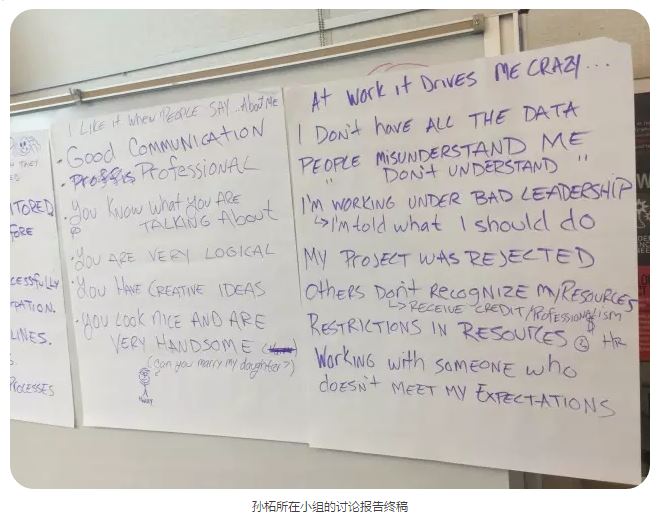 I LIKE IT WHEN PEOPLE SAY... About ME
• GOOD COMMUNICATION
• PROFESSIONAL
• YOU KNOW WHAT YOU ARE
TALKING ABOUT
• YOU ARE VERY LOGICAL
• YOU HAVE CREATIVE IDEAS
• YOU LOOK NICE AND ARE
VERY HANDSOME
(can you marry my daughter?)
AT WORK IT DRIVES ME CRAZY...
I DON'T HAVE ALL THE DATA
PEOPLE MISUNDERSTAND ME
" DON'T UNDERSTAND "
I'M WORKING UNDER BAD LEADERSHIP
↳ I'm told what I should do
MY PROJECT WAS REJECTED
OTHERS DON'T RECOGNIZE MY RESOURCES
↳ RECEIVE CREDIT/PROFESSIONALISM
RESTRICTIONS IN RESOURCES $ HR
WORKING WITH SOMEONE WHO
DOESN'T MEET MY EXPECTATIONS
ITORED
FORE
CESSFULLY
LINES.
PROCESSES
孙柘所在小组的讨论报告终稿